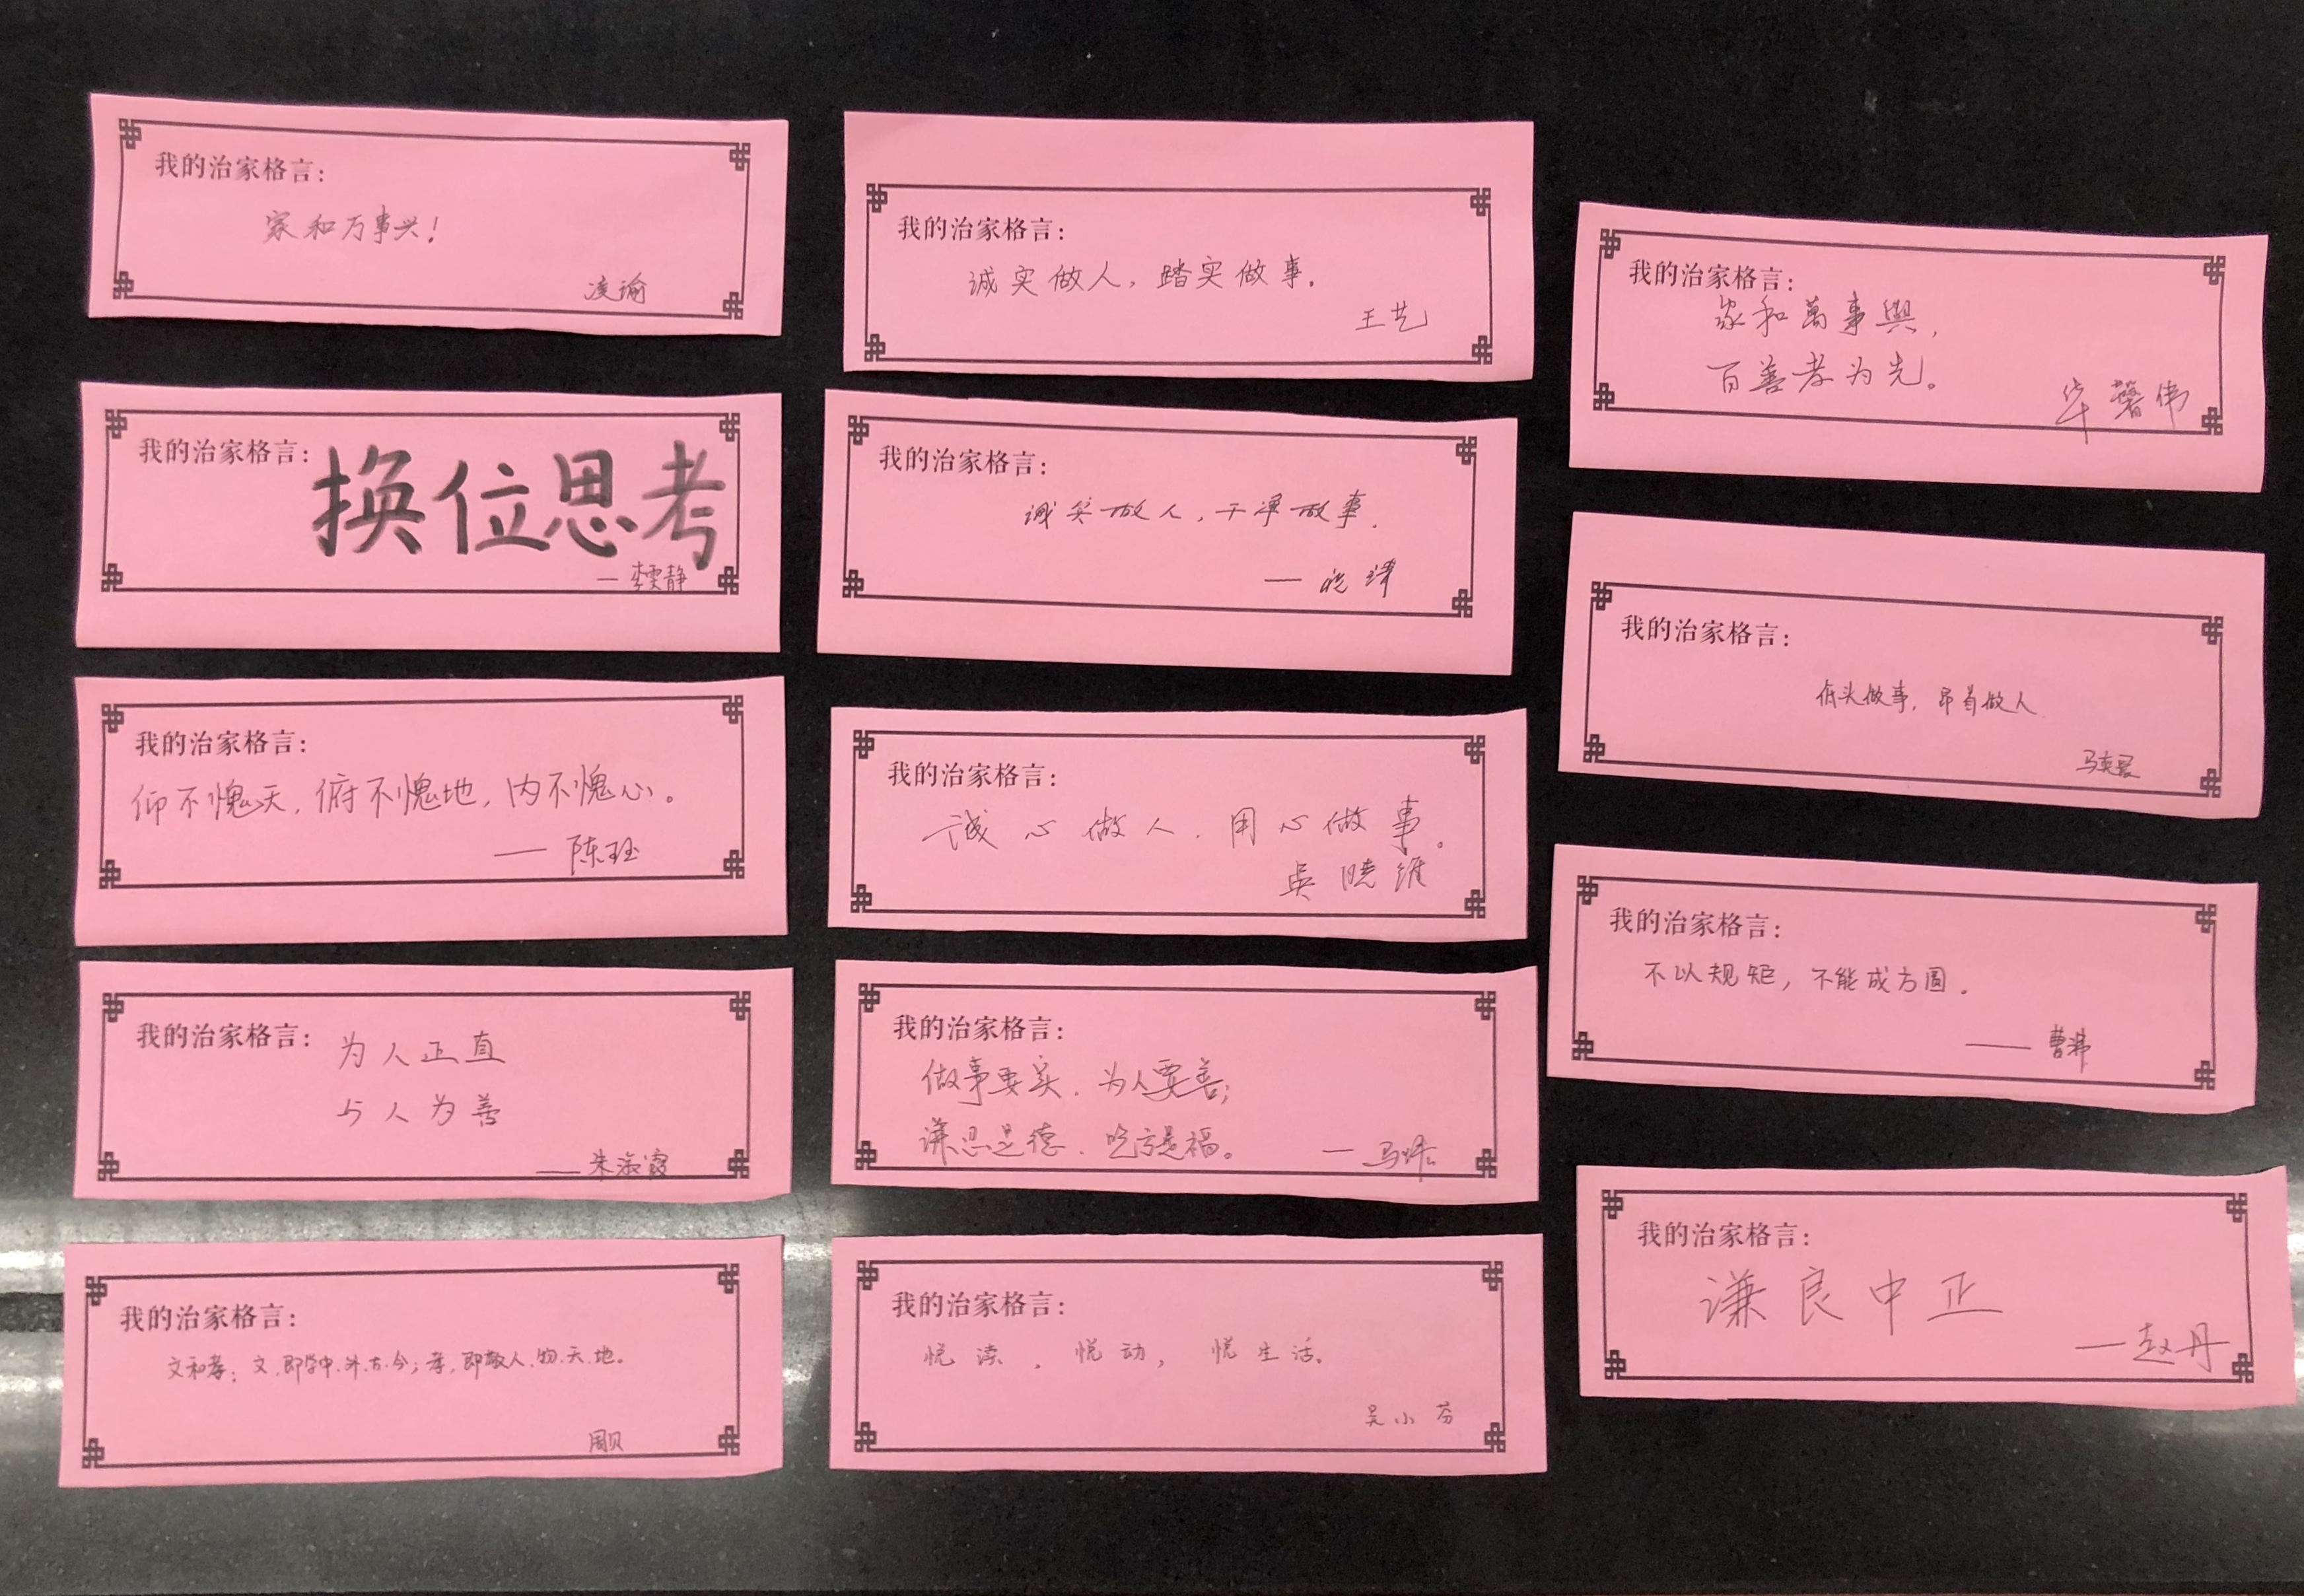 我的治家格言：
家和万事兴！
凌谕
我的治家格言：
换位思考
—李雯静
我的治家格言：
仰不愧天，俯不愧地，内不愧心。
——陈珏
我的治家格言：
为人正直
与人为善
——朱海霞
我的治家格言：
文和孝：文，即学中、外、古、今；孝，即敬人、物、天、地。
周贝
我的治家格言：
诚实做人，踏实做事。
王艺
我的治家格言：
诚实做人，干净做事.
我的治家格言：
诚心做人．用心做事。
吳晓维
我的治家格言：
做事要实．为人要善；
谦忍是德．吃亏是福。
我的治家格言：
悦读，悦动，悦生活。
吴小芬
我的治家格言：
家和萬事興，
百善孝为先。
华馨伟
我的治家格言：
低头做事，昂首做人
我的治家格言：
不以规矩，不能成方圆。
我的治家格言：
谦良中正
—赵丹